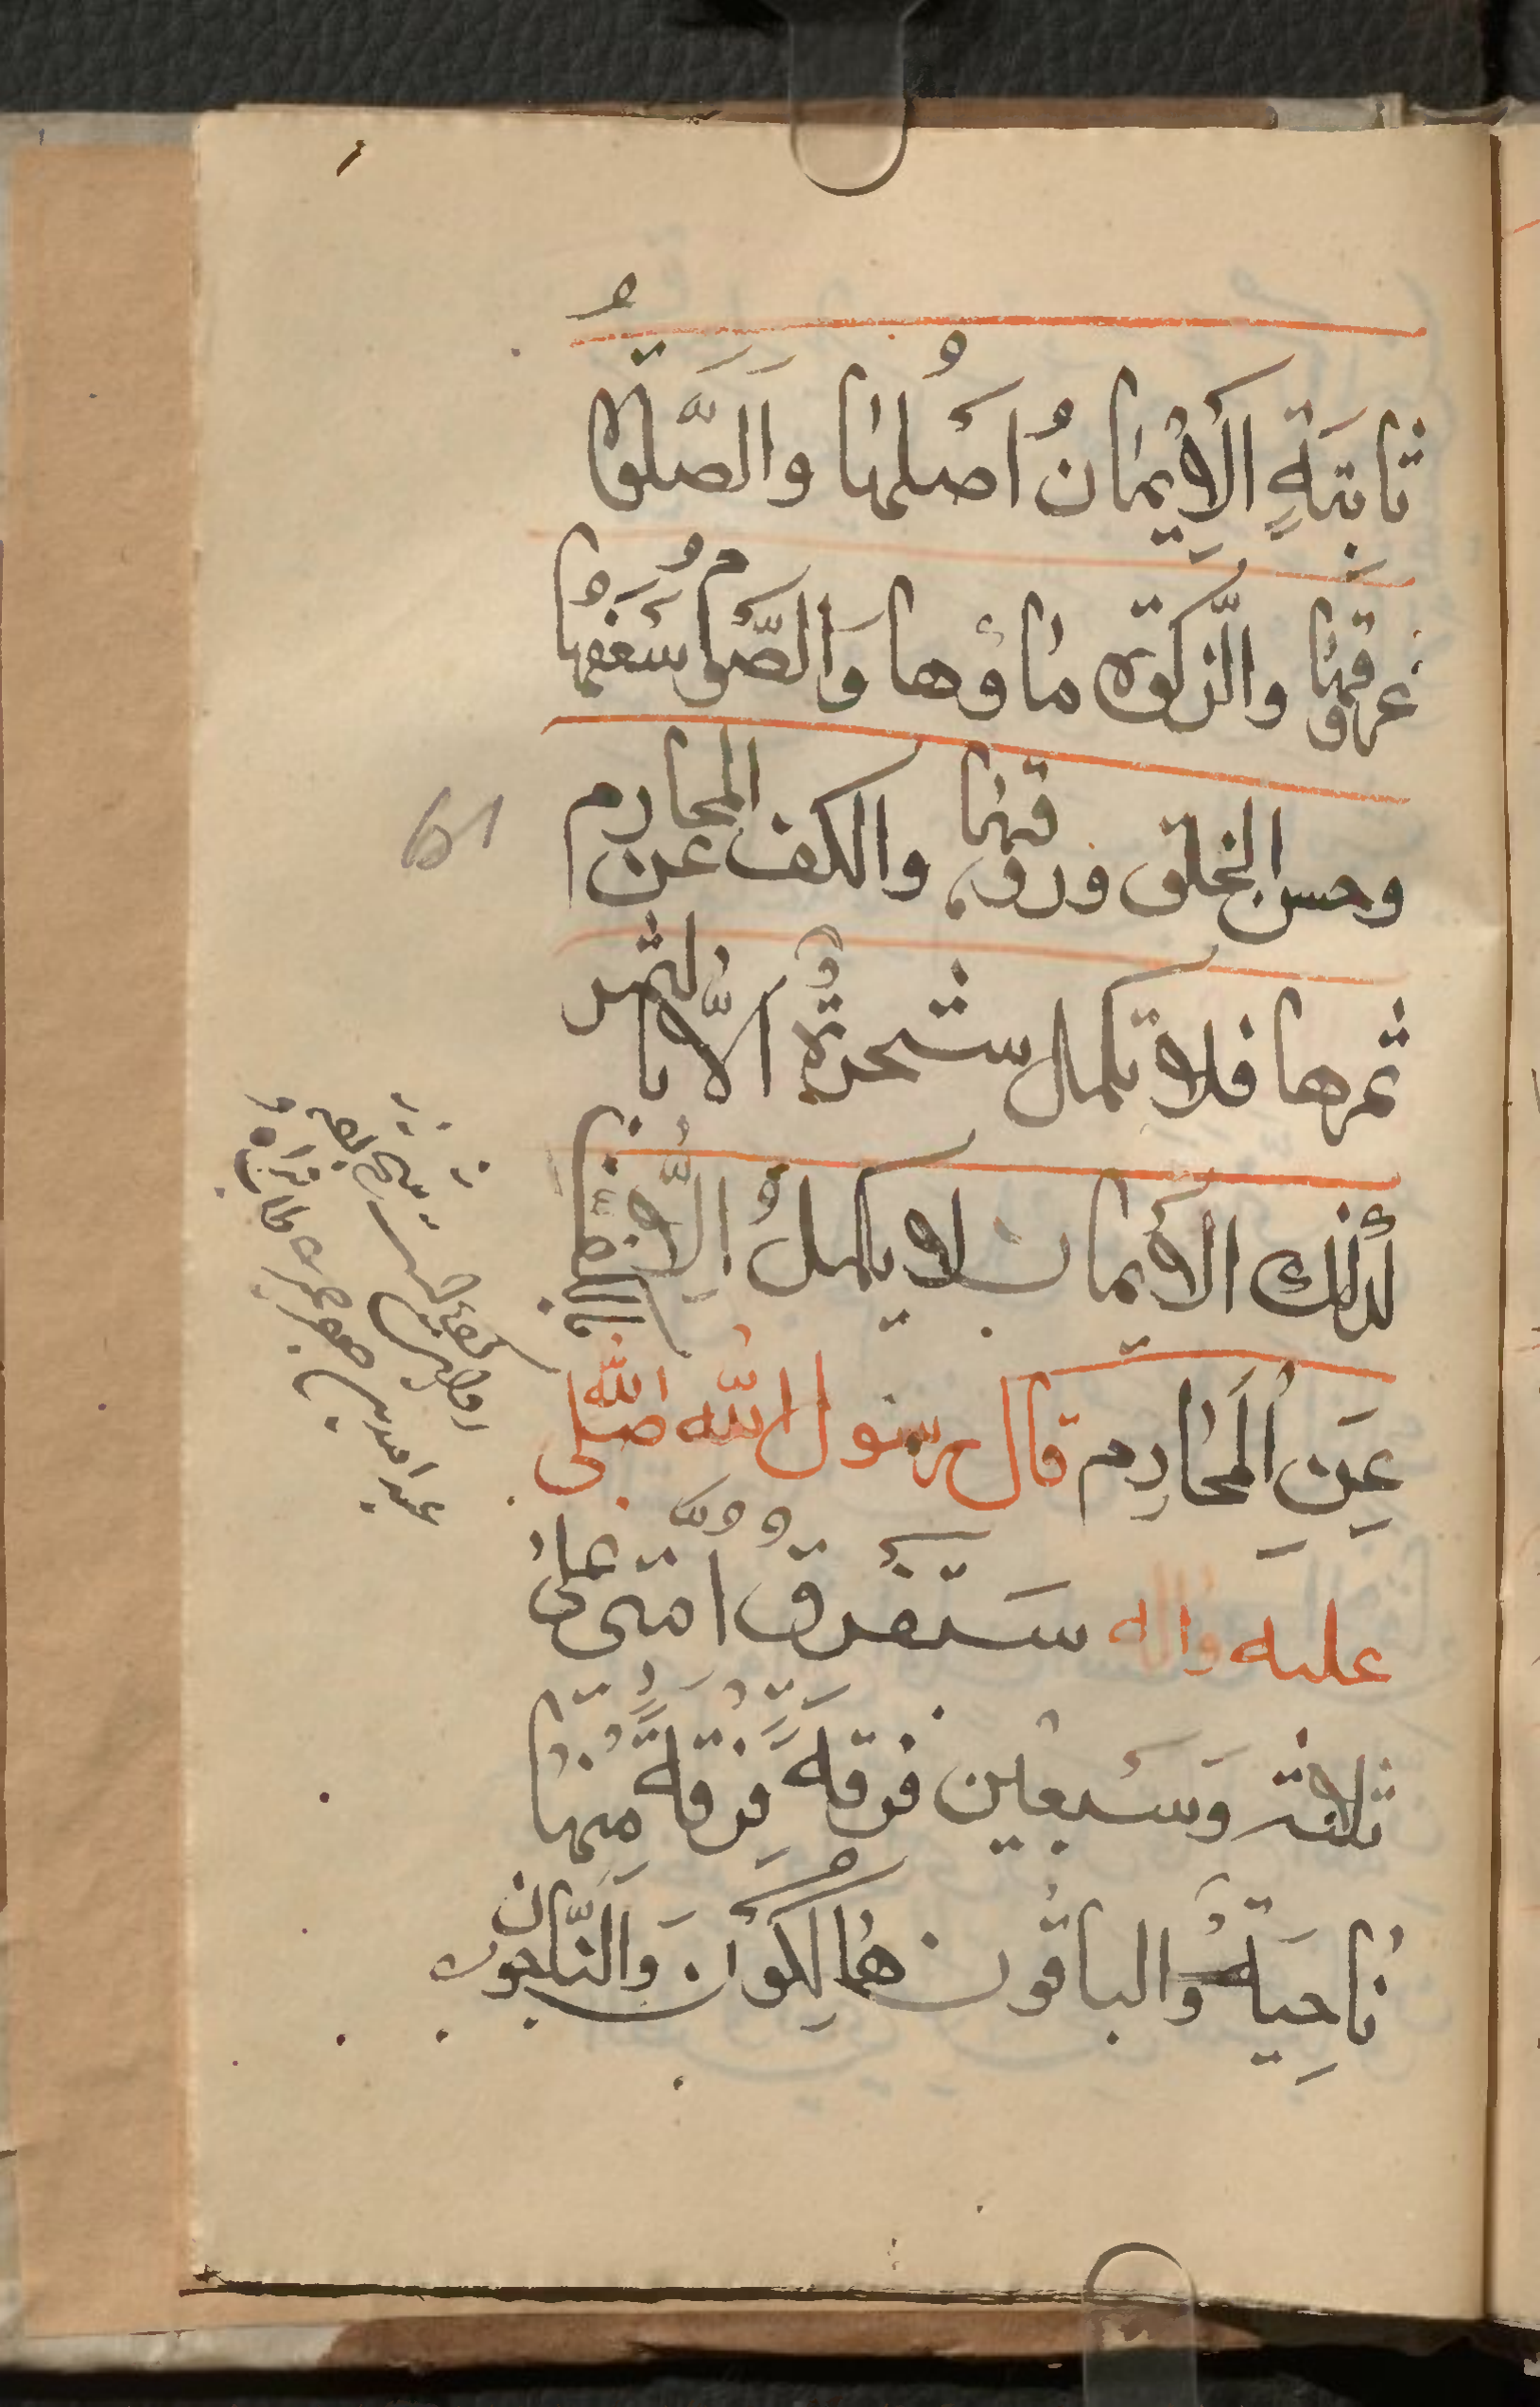 ثابتةٍ الْاِيْمٰانُ اَصْلُهٰا وَالصَّلٰوةُ
عروقهٰا والزَّكوة مٰاؤها وَالصَّوْمُ سَعَفُهٰا
وحسن الخلق ورقهٰا والكف عن المحارم
ثمرها فلا تكمل شجرةٌ الّا بالثمر
كذلك الْايمان لا يكملُ اِلّا بالكف
عَنِ الْمَحٰارِم قال رسول الله صلى الله
عليه واله سَتَفْرقُ امّتى علىٰ
ثلاثة وَسَبْعِيْن فرقةً فِرْقَةٌ مِنْهٰا
نٰاجِيَةٌ وَالباقُون هٰالِكُوْنَ وَالنّٰاجون
61